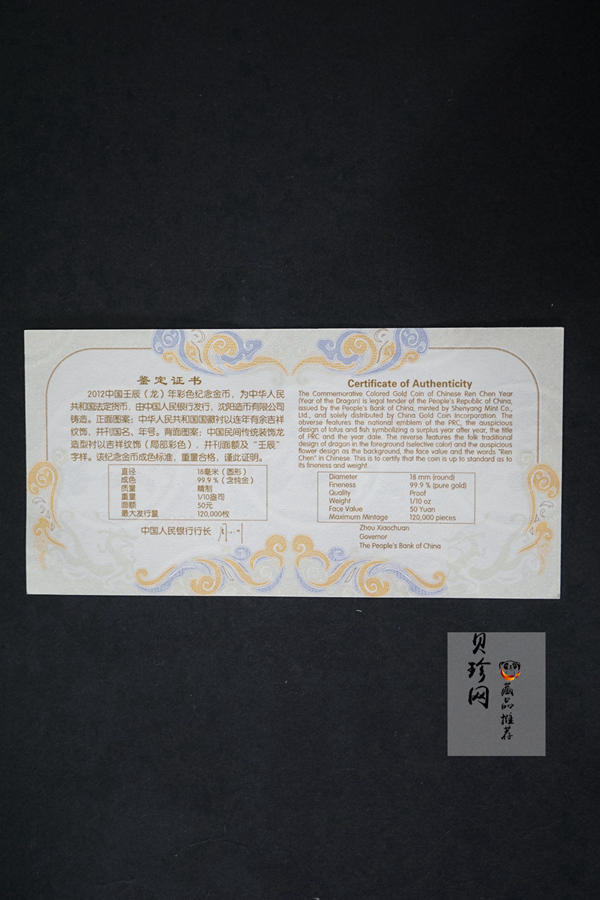 鉴定证书
2012中国壬辰（龙）年彩色纪念金币，为中华人民
共和国法定货币，由中国人民银行发行，沈阳造币有限公司
铸造。正面图案：中华人民共和国国徽衬以连年有余吉祥
纹饰，并刊国名、年号。背面图案：中国民间传统装饰龙
造型衬以吉祥纹饰（局部彩色），并刊面额及“壬辰”
字样。该纪念金币成色标准，重量合格，谨此证明。
直径 18毫米（圆形）
成色 99.9％（含纯金）
质量 精制
重量 1/10盎司
面额 50元
最大发行量 120,000枚
中国人民银行行长
Certificate of Authenticity
The Commemorative Colored Gold Coin of Chinese Ren Chen Year
(Year of the Dragon) is legal tender of the People's Republic of China,
issued by the People's Bank of China, minted by Shenyang Mint Co.,
Ltd., and solely distributed by China Gold Coin Incorporation. The
obverse features the national emblem of the PRC, the auspicious
design of lotus and fish symbolizing a surplus year after year, the title
of PRC and the year date. The reverse features the folk traditional
design of dragon in the foreground (selective color) and the auspicious
flower design as the background, the face value and the words "Ren
Chen" in Chinese. This is to certify that the coin is up to standard as to
its fineness and weight.
Diameter 18 mm (round)
Fineness 99.9 % (pure gold)
Quality Proof
Weight 1/10 oz
Face Value 50 Yuan
Maximum Mintage 120,000 pieces
Zhou Xiaochuan
Governor
The People's Bank of China
贝珍网
藏品推荐